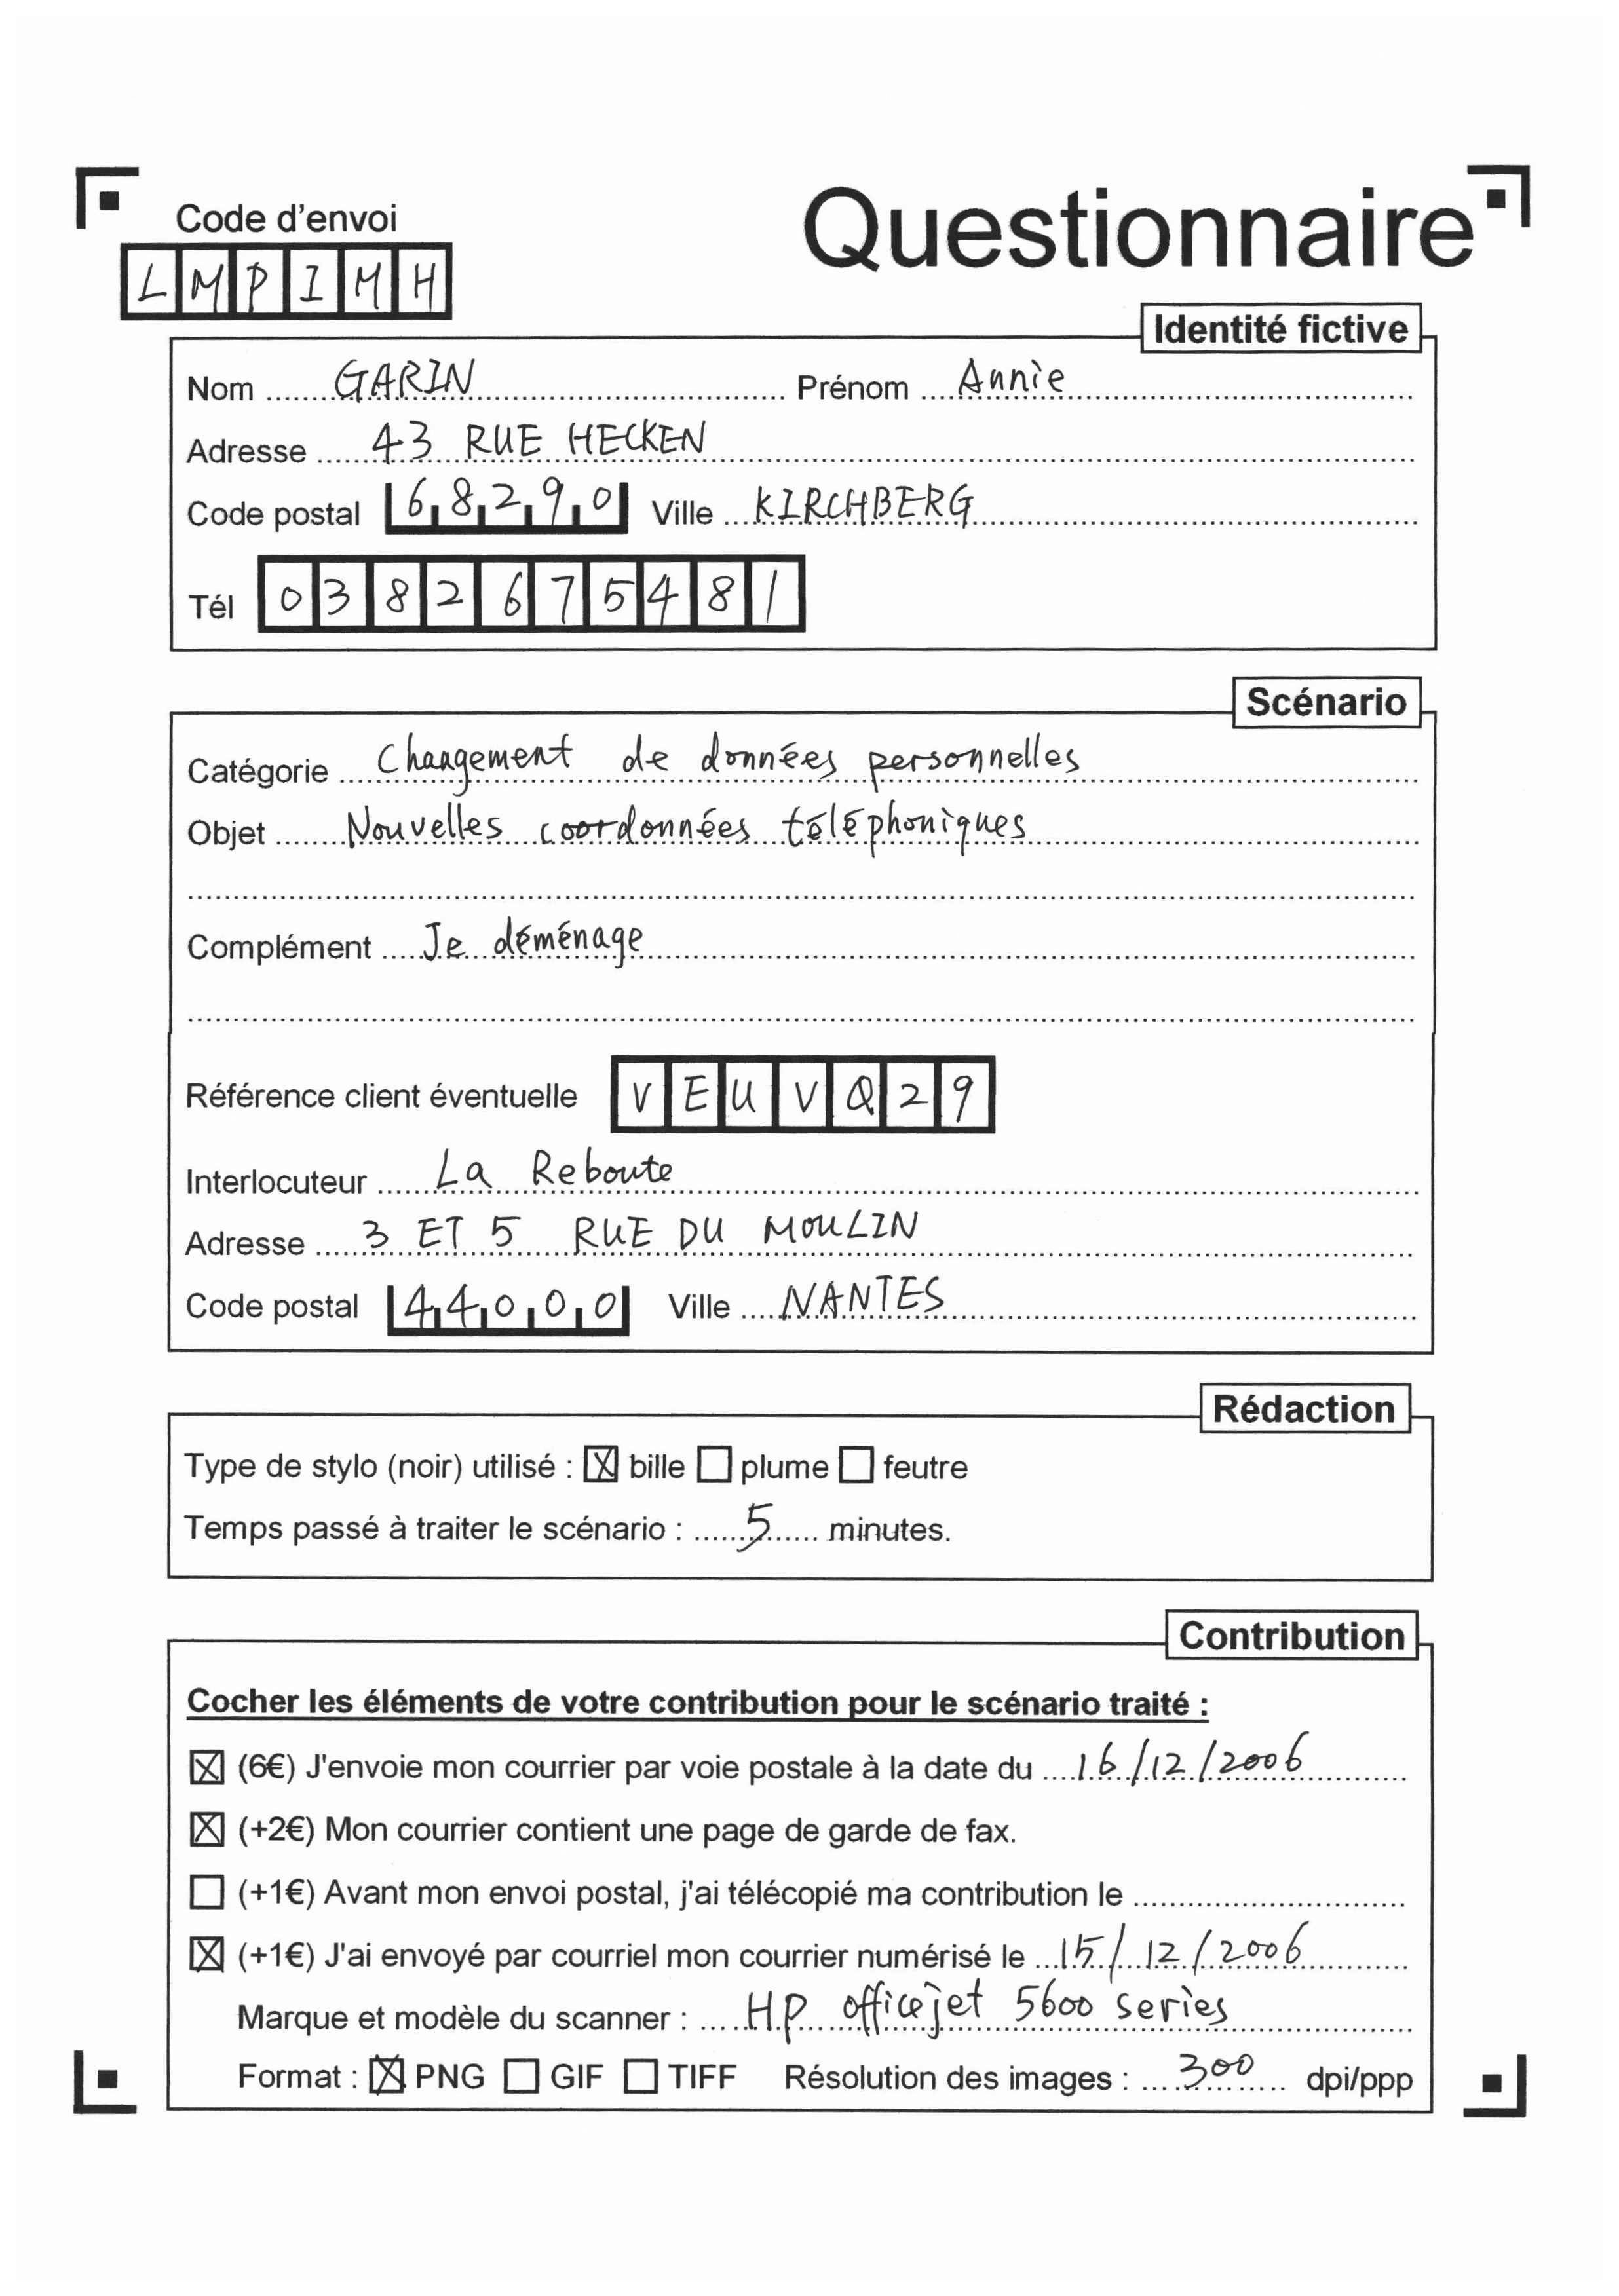 Questionnaire
Code d'envoi
LMPIMH
Identité fictive
Nom GARIN Prénom Annie
Adresse 43 RUE HECKEN
Code postal 68290 Ville KIRCHBERG
Tél 0382675481
Scénario
Catégorie Changement de données personnelles
Objet Nouvelles coordonnées téléphoniques
Complément Je déménage
Référence client éventuelle VEUVQ29
Interlocuteur La Reboute
Adresse 3 ET 5 RUE DU MOULIN
Code postal 44000 Ville NANTES
Rédaction
Type de stylo (noir) utilisé : ☒ bille ☐ plume ☐ feutre
Temps passé à traiter le scénario : 5 minutes.
Contribution
Cocher les éléments de votre contribution pour le scénario traité :
☒ (6€) J'envoie mon courrier par voie postale à la date du 16/12/2006
☒ (+2€) Mon courrier contient une page de garde de fax.
☐ (+1€) Avant mon envoi postal, j'ai télécopié ma contribution le
☒ (+1€) J'ai envoyé par courriel mon courrier numérisé le 15/12/2006
Marque et modèle du scanner : HP officejet 5600 series
Format : ☒ PNG ☐ GIF ☐ TIFF Résolution des images : 300 dpi/ppp